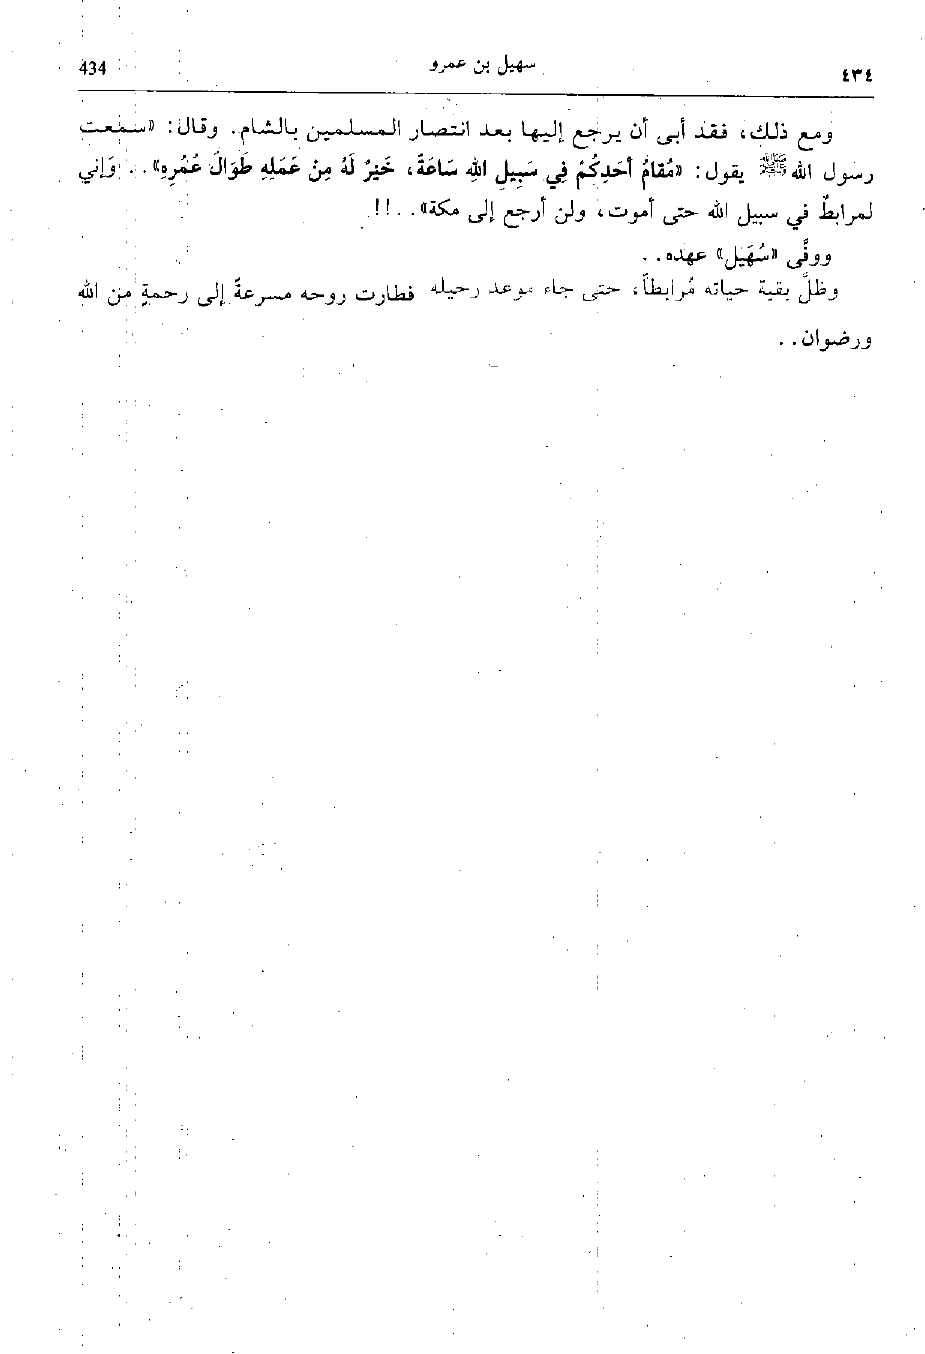 ٤٣٤ سهيل بن عمرو 434
ومع ذلك، فقد أبى أن يرجع إليها بعد انتصار المسلمين بالشام. وقال: «سمعت
رسول الله ﷺ يقول: «مُقامُ أحَدِكُمْ فِي سَبِيلِ اللهِ سَاعَةً، خَيْرٌ لَهُ مِنْ عَمَلِهِ طَوَالَ عُمُرِهِ».. وَإني
لمرابطٌ في سبيل الله حتى أموت، ولن أرجع إلى مكة»..!!
ووفَّى «سُهَيل» عهده..
وظلَّ بقية حياته مُرابطاً، حتى جاء موعد رحيله فطارت روحه مسرعةً إلى رحمةٍ من الله
ورضوان..